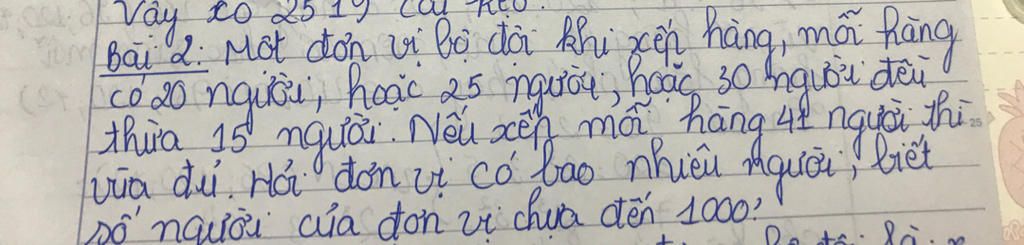 Vậy có 2519 cái kẹo.
Bài 2: Một đơn vị bộ đội khi xếp hàng, mỗi hàng
có 20 người, hoặc 25 người, hoặc 30 người đều
thừa 15 người. Nếu xếp mỗi hàng 41 người thì
vừa đủ. Hỏi đơn vị có bao nhiêu người, biết
số người của đơn vị chưa đến 1000?